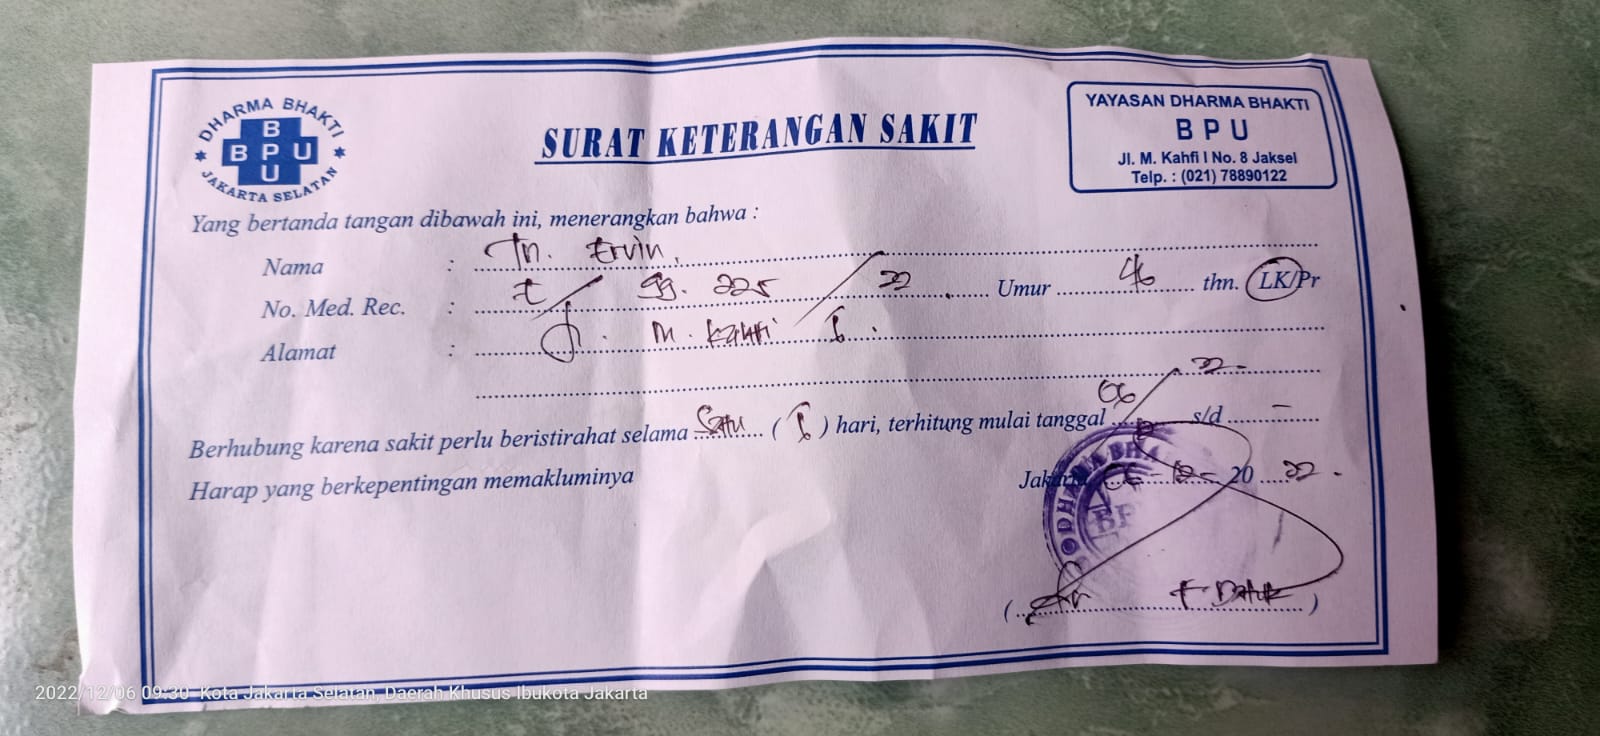 DHARMA BHAKTI
B
BPU
U
JAKARTA SELATAN
SURAT KETERANGAN SAKIT
YAYASAN DHARMA BHAKTI
BPU
Jl. M. Kahfi I No. 8 Jaksel
Telp. : (021) 78890122
Yang bertanda tangan dibawah ini, menerangkan bahwa :
Nama : Tn. Ervin.
No. Med. Rec. : 225 / 22 Umur 46 thn. LK/Pr
Alamat : Jl. M. Kahfi I.
Berhubung karena sakit perlu beristirahat selama Satu ( I ) hari, terhitung mulai tanggal 06 / 22 - s/d -
Harap yang berkepentingan memakluminya
Jakarta 06 - 12 - 20 22.
2022/12/06 09:30 Kota Jakarta Selatan, Daerah Khusus Ibukota Jakarta